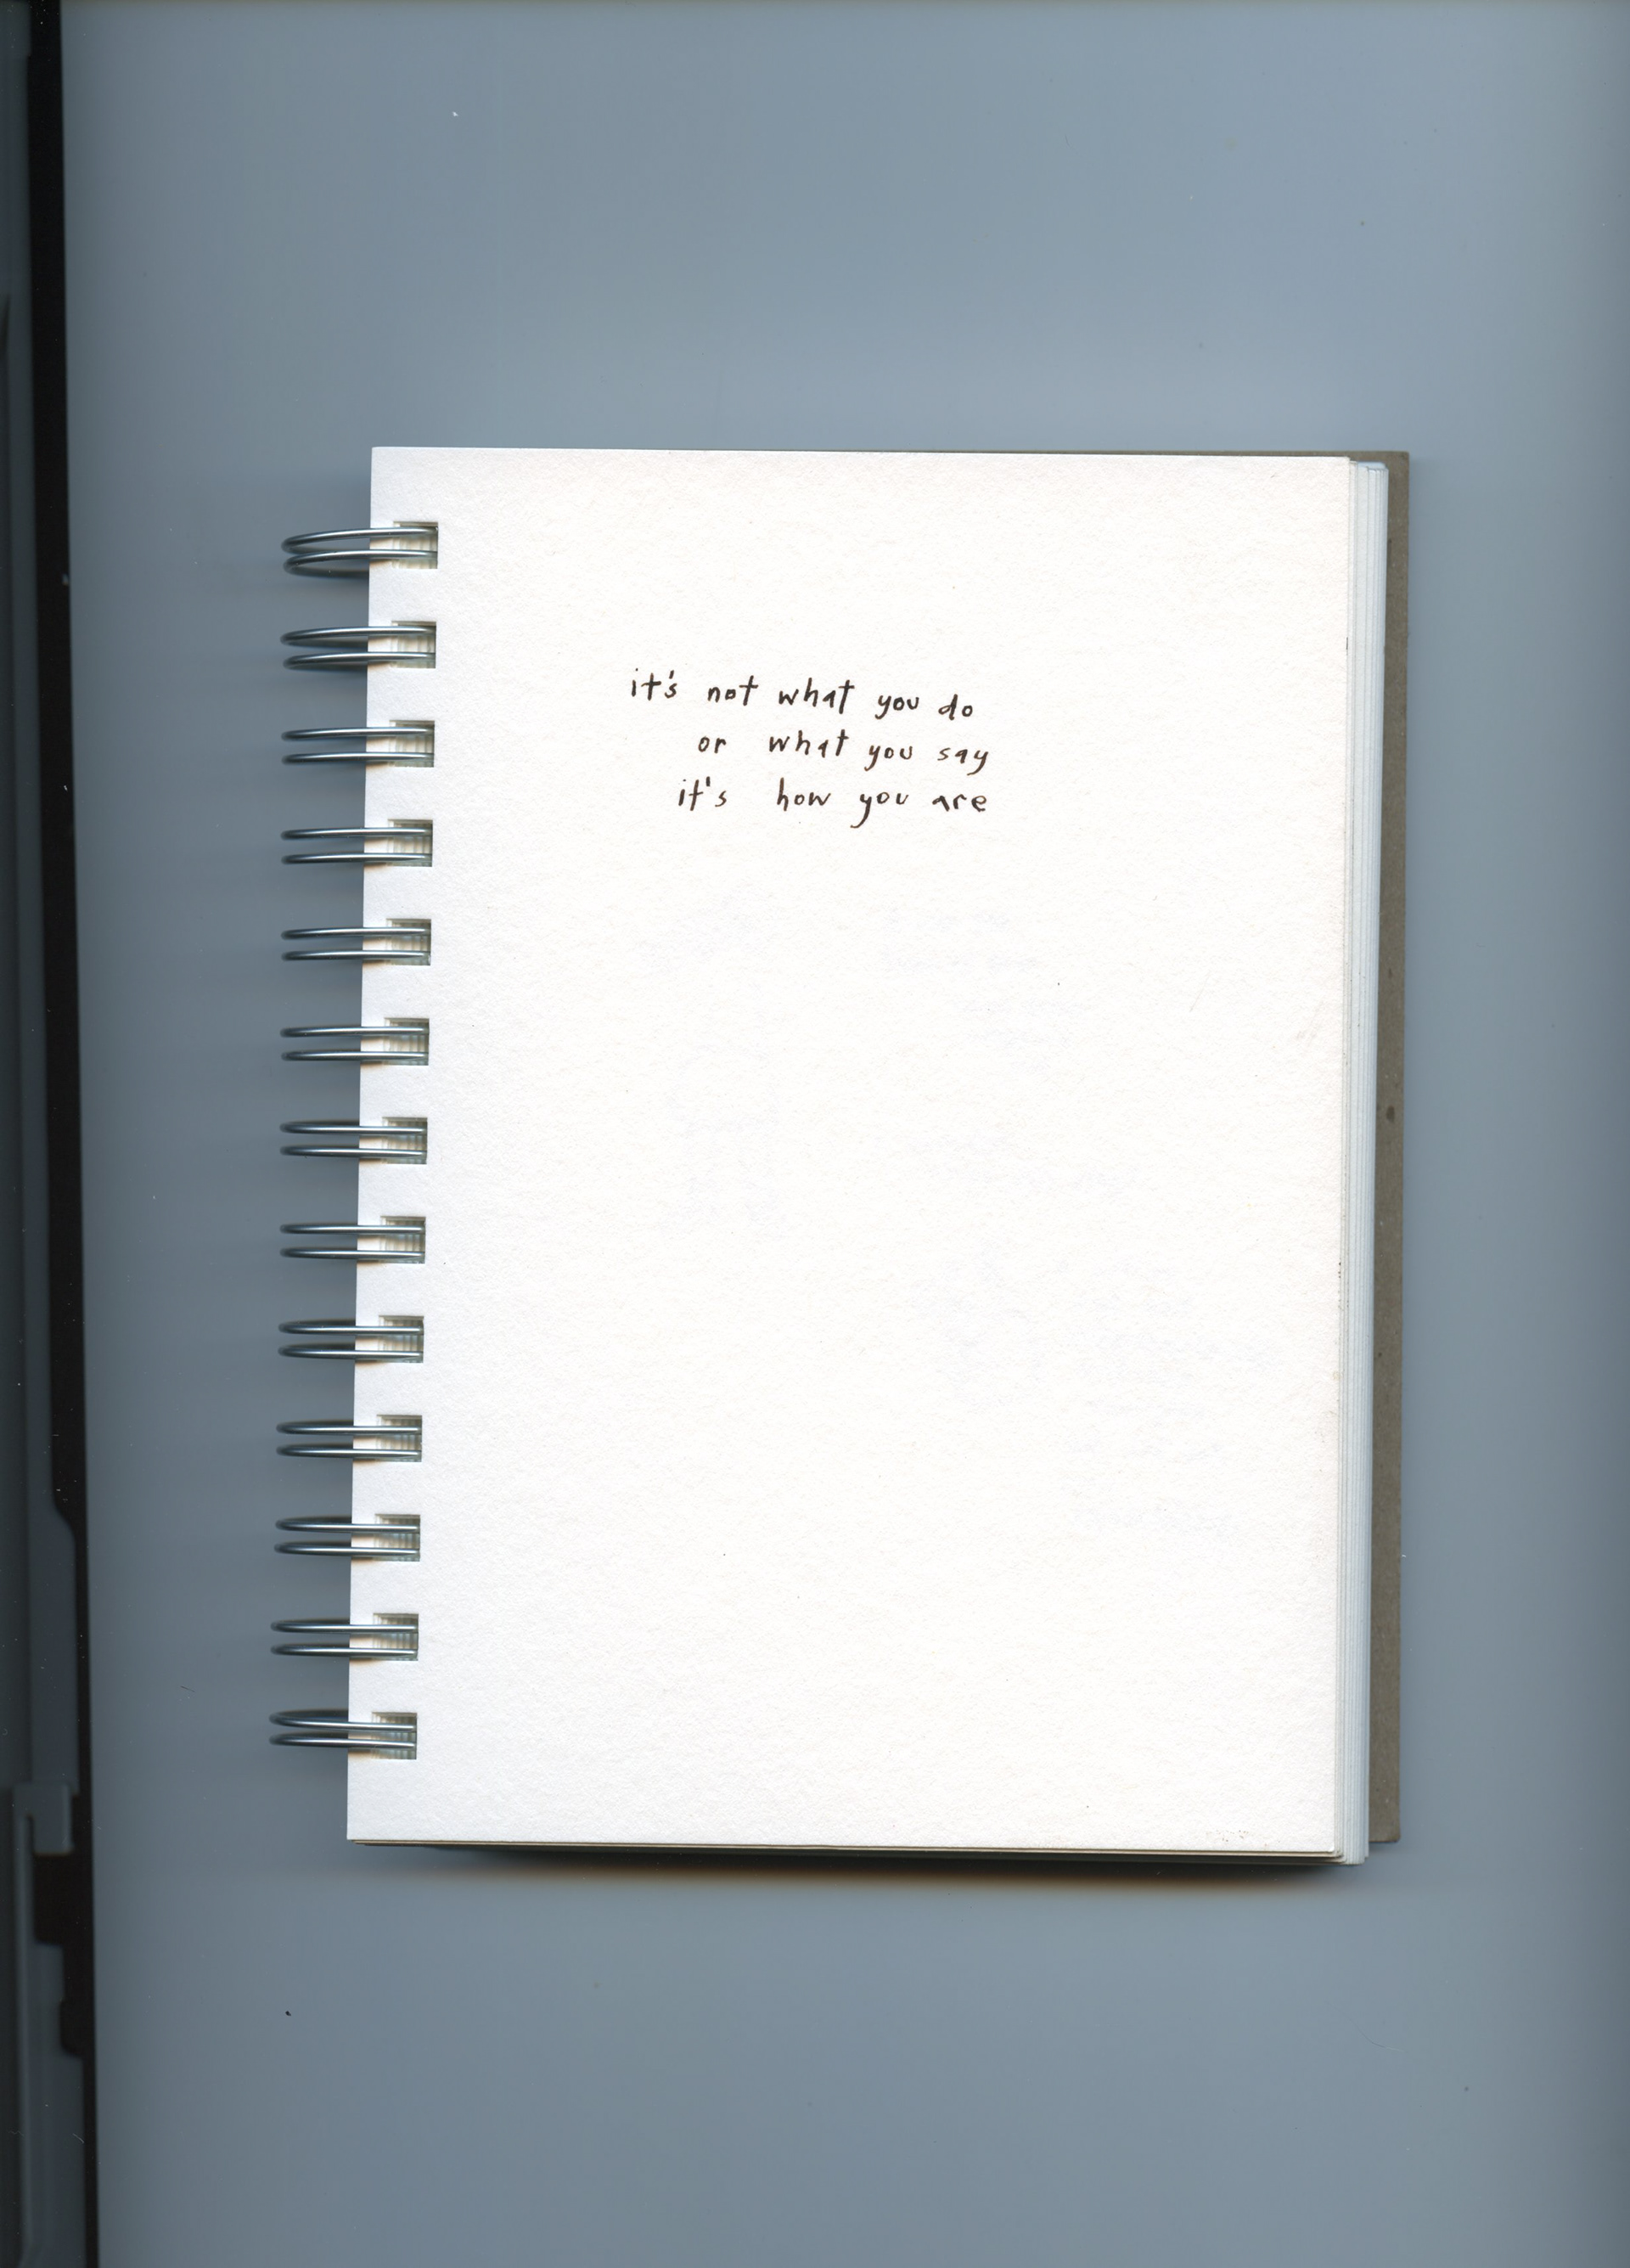 it's not what you do
or what you say
it's how you are